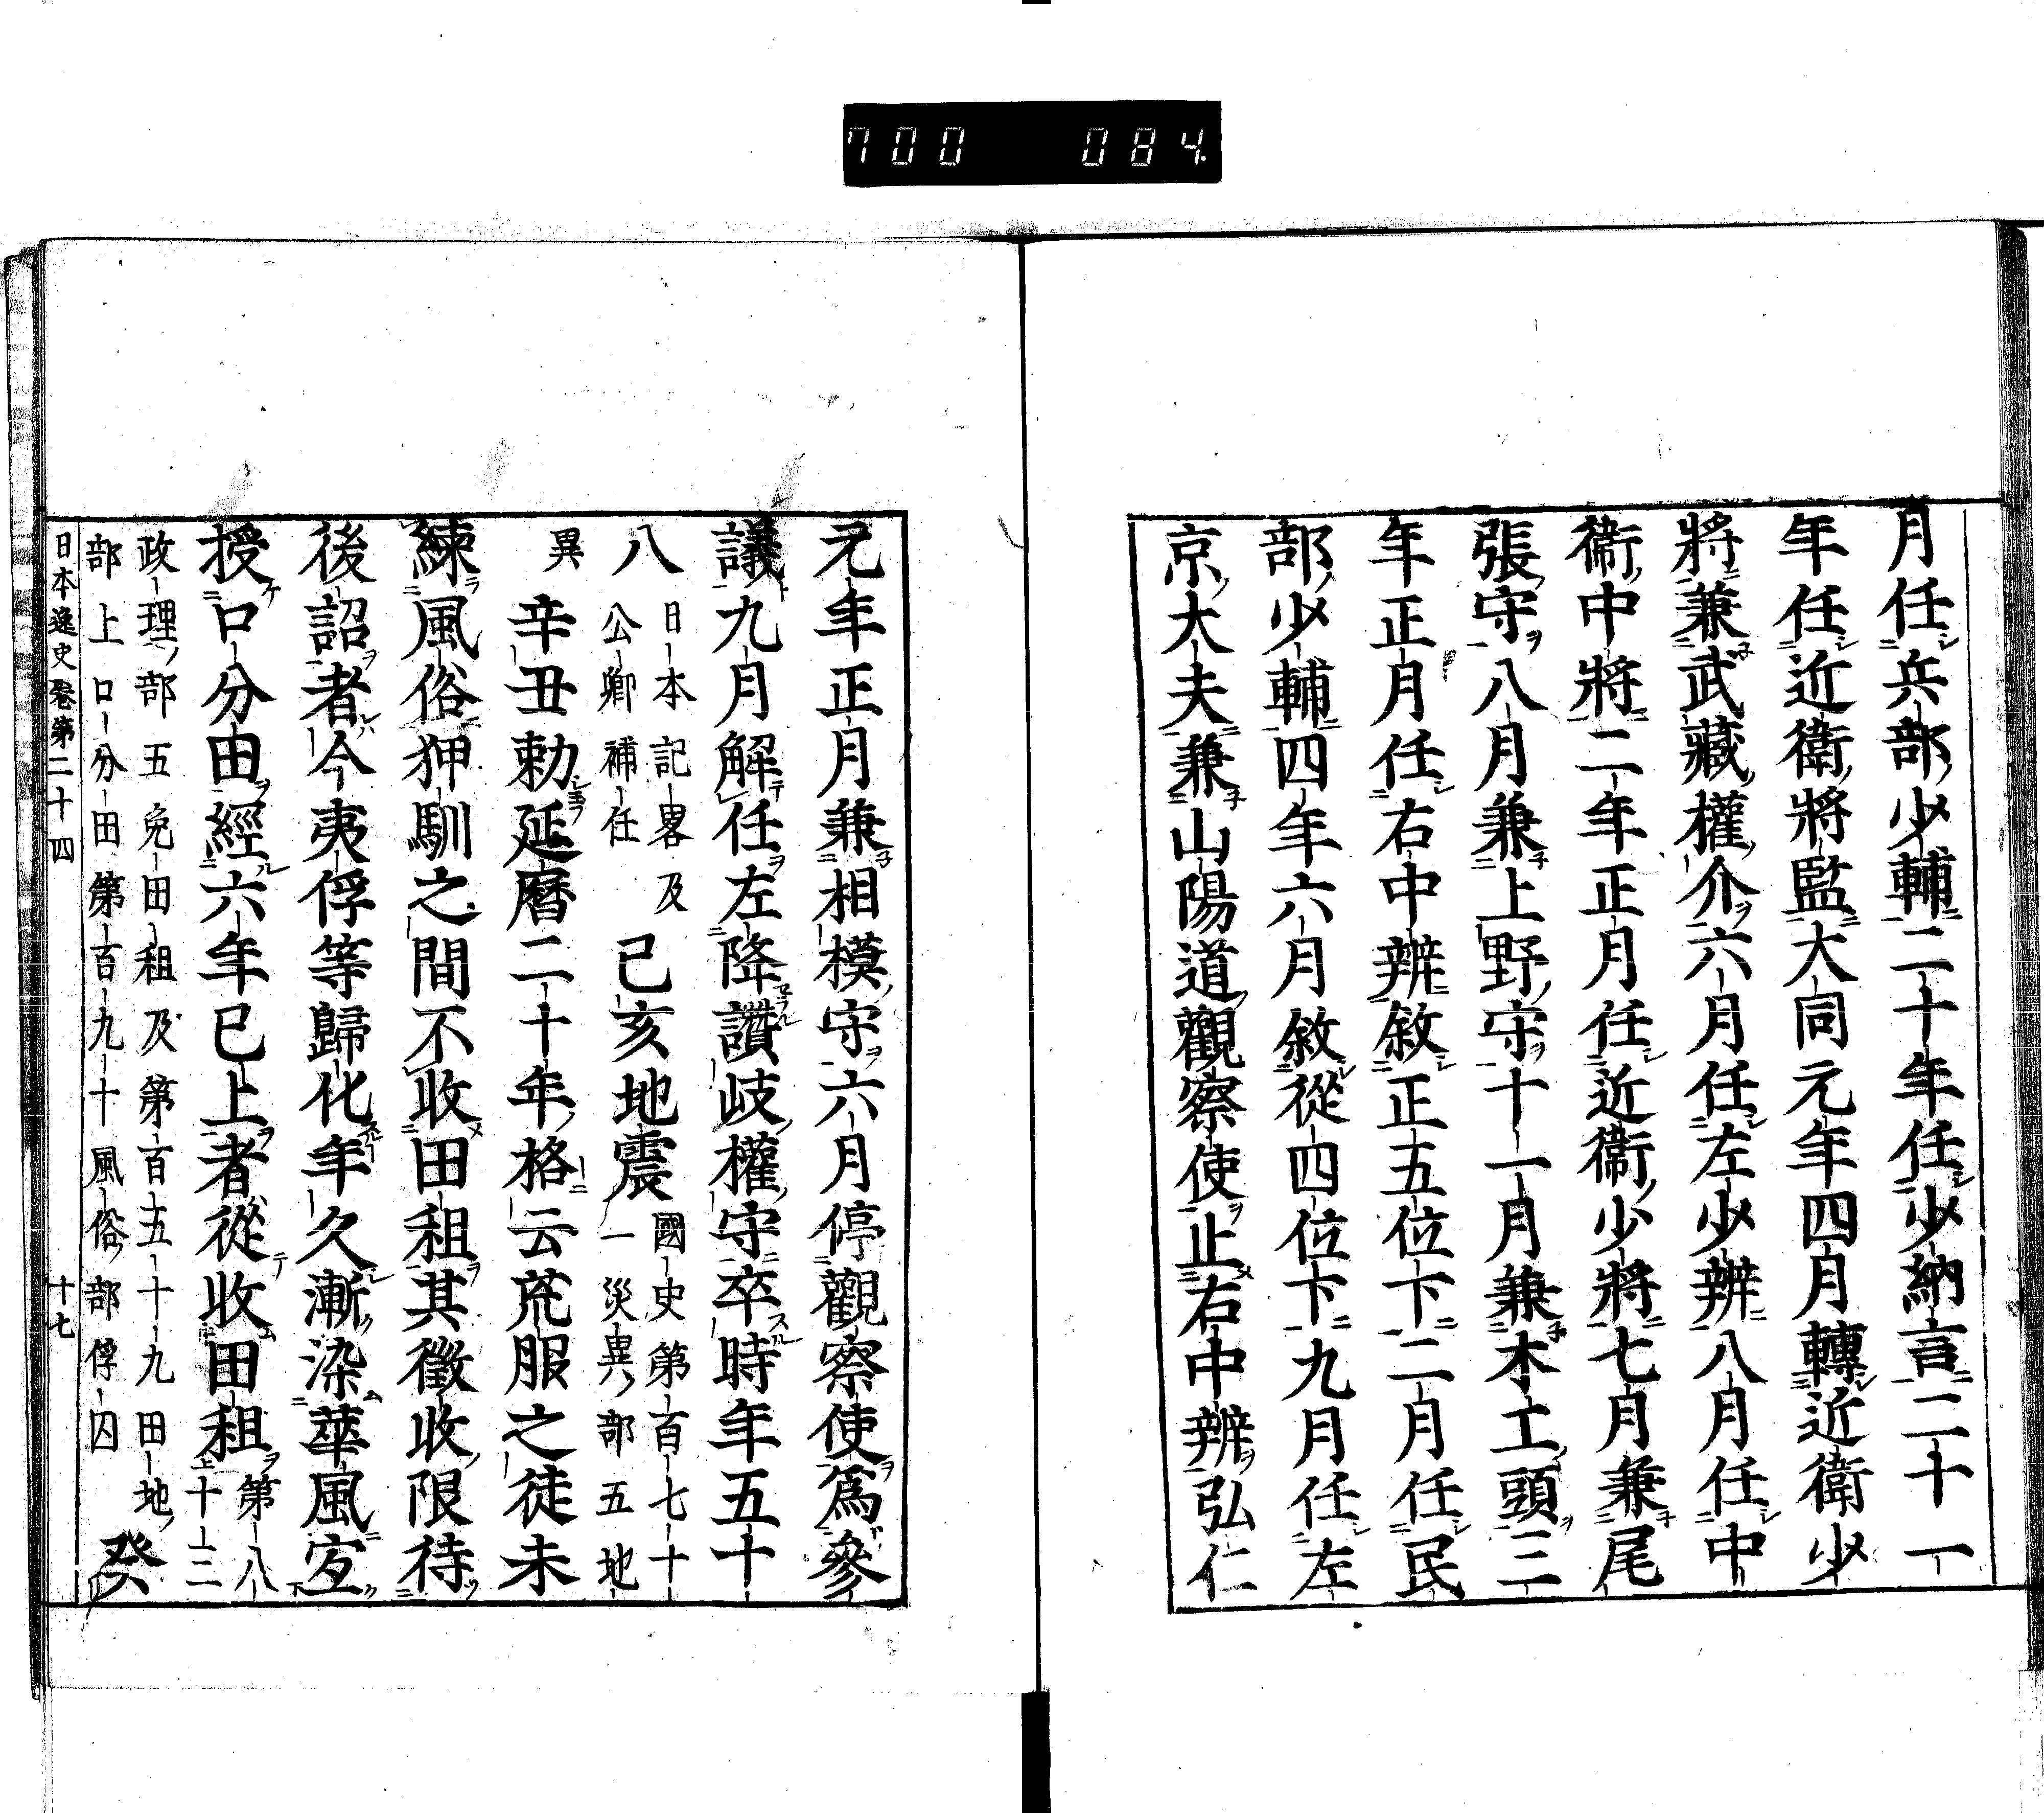 700 084
月任兵部少輔二十年任少納言二十一
年任近衛將監大同元年四月轉近衛少
將兼武藏權介六月任左少辨八月任中
衞中將二年正月任近衞少將七月兼尾
張守八月兼上野守十一月兼木工頭三
年正月任右中辨敘正五位下二月任民
部少輔四年六月敘從四位下九月任左
京大夫兼山陽道觀察使止右中辨弘仁
元年正月兼相模守六月停觀察使爲參
議九月解任左降讚岐權守卒時年五十
八
日本記畧及
公卿補任
己亥地震
國史第百七十
一災異部五地
異
辛丑勅延曆二十年格云荒服之徒未
練風俗狎馴之間不收田租其徵收限待
後詔者今夷俘等歸化年久漸染華風宜
授口分田經六年已上者從收田租
第八
十二
政理部五免田租及第百五十九田地
部上口分田第百九十風俗部俘囚
癸
日本逸史卷第二十四
十七